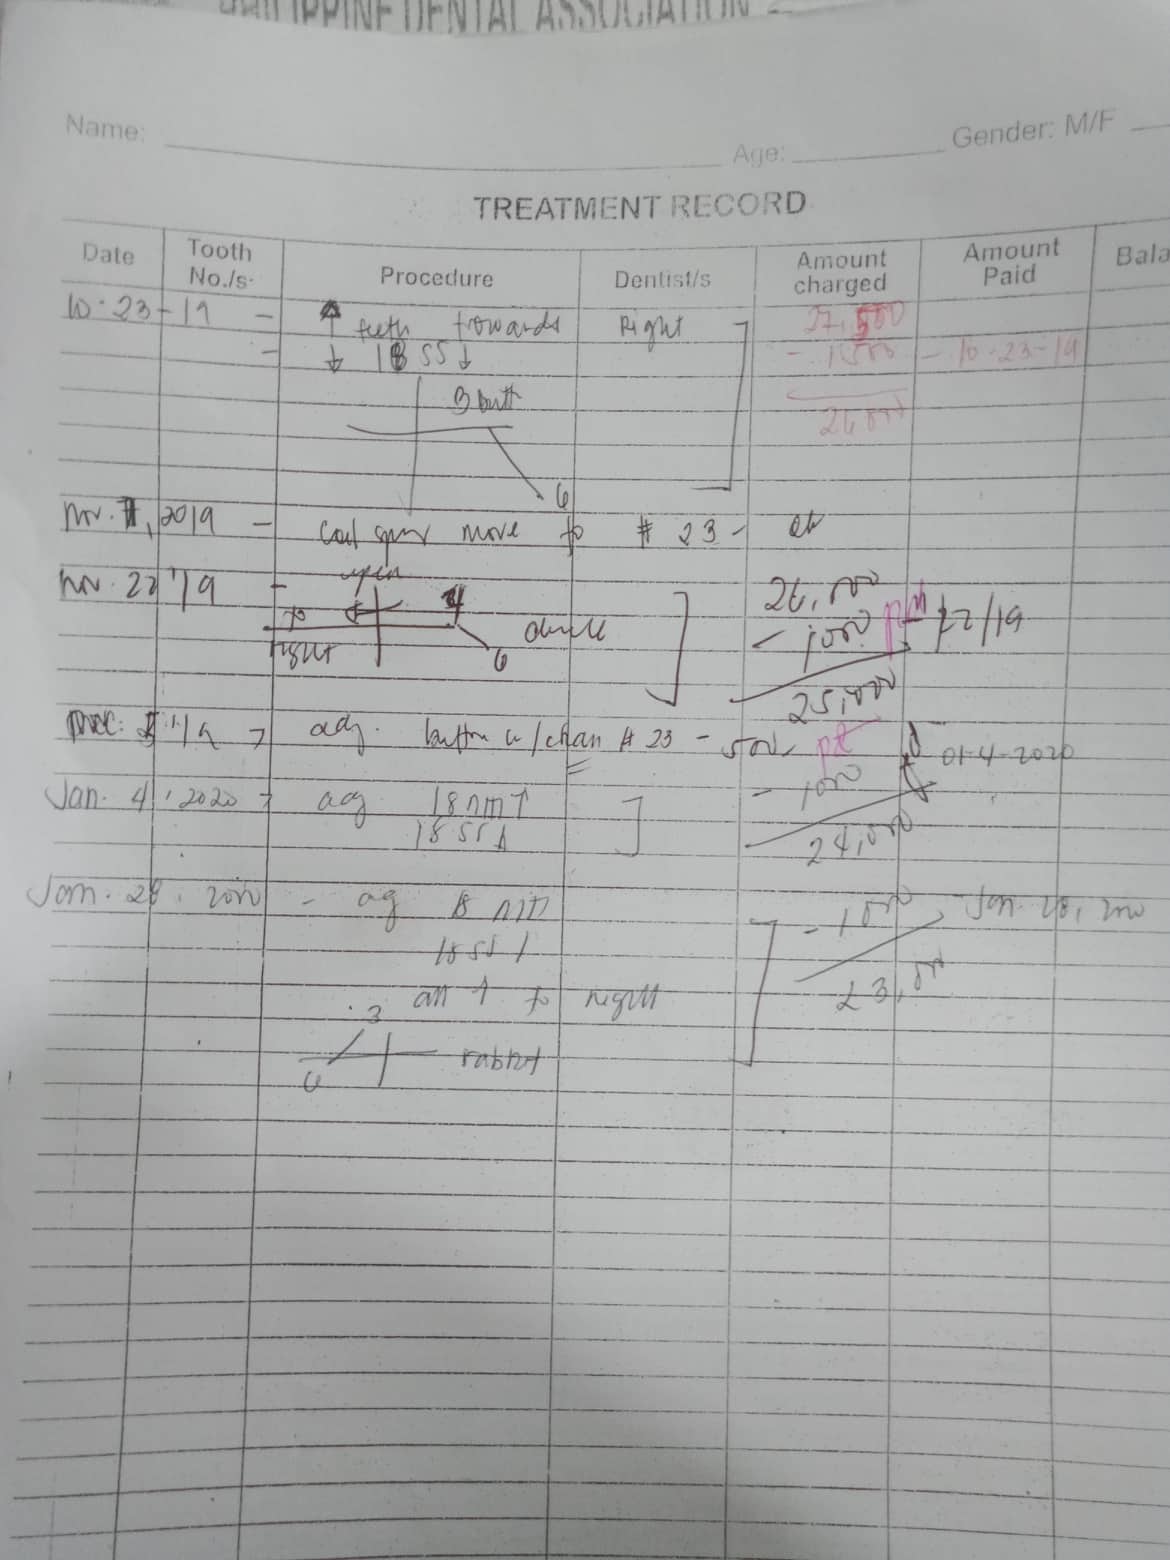 PHILIPPINE DENTAL ASSOCIATION
Name:
Age:
Gender: M/F
TREATMENT RECORD
Date
Tooth No./s.
Procedure
Dentist/s
Amount charged
Amount Paid
Bala
10-23-19 - ↑ teeth towards Right 27,500
- ↓ 18 SS ↓ - 1,500 - 10-23-19
3 butt 26,000
6
Nov. 7, 2019 - coil move to # 23 -
open
Nov. 22 '19 - 26,000
to 4 - 1000 22/19
right 6
25,000
Dec. '19 → adj. button w/ chain # 23 - 500 01-4-2020
Jan. 4, 2020 - 18 ↑ - 1000
18 SS ↓ 24,000
Jan. 28, 2020 - 18 - 1000 - Jan. 28, 2020
18 SS ↓
all ↑ to right 23,000
3
6 rabbit